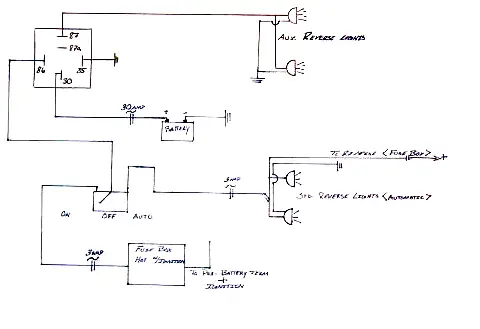 87
87a
86
85
30
Aux. Reverse Lights
30 amp
+ -
Battery
To Reverse <Fuse Box> +
3 amp
Std Reverse Lights <Automatic>
ON
OFF
AUTO
3 amp
Fuse Box
Hot w/Ignition
To Pos. Battery Term
+
Ignition